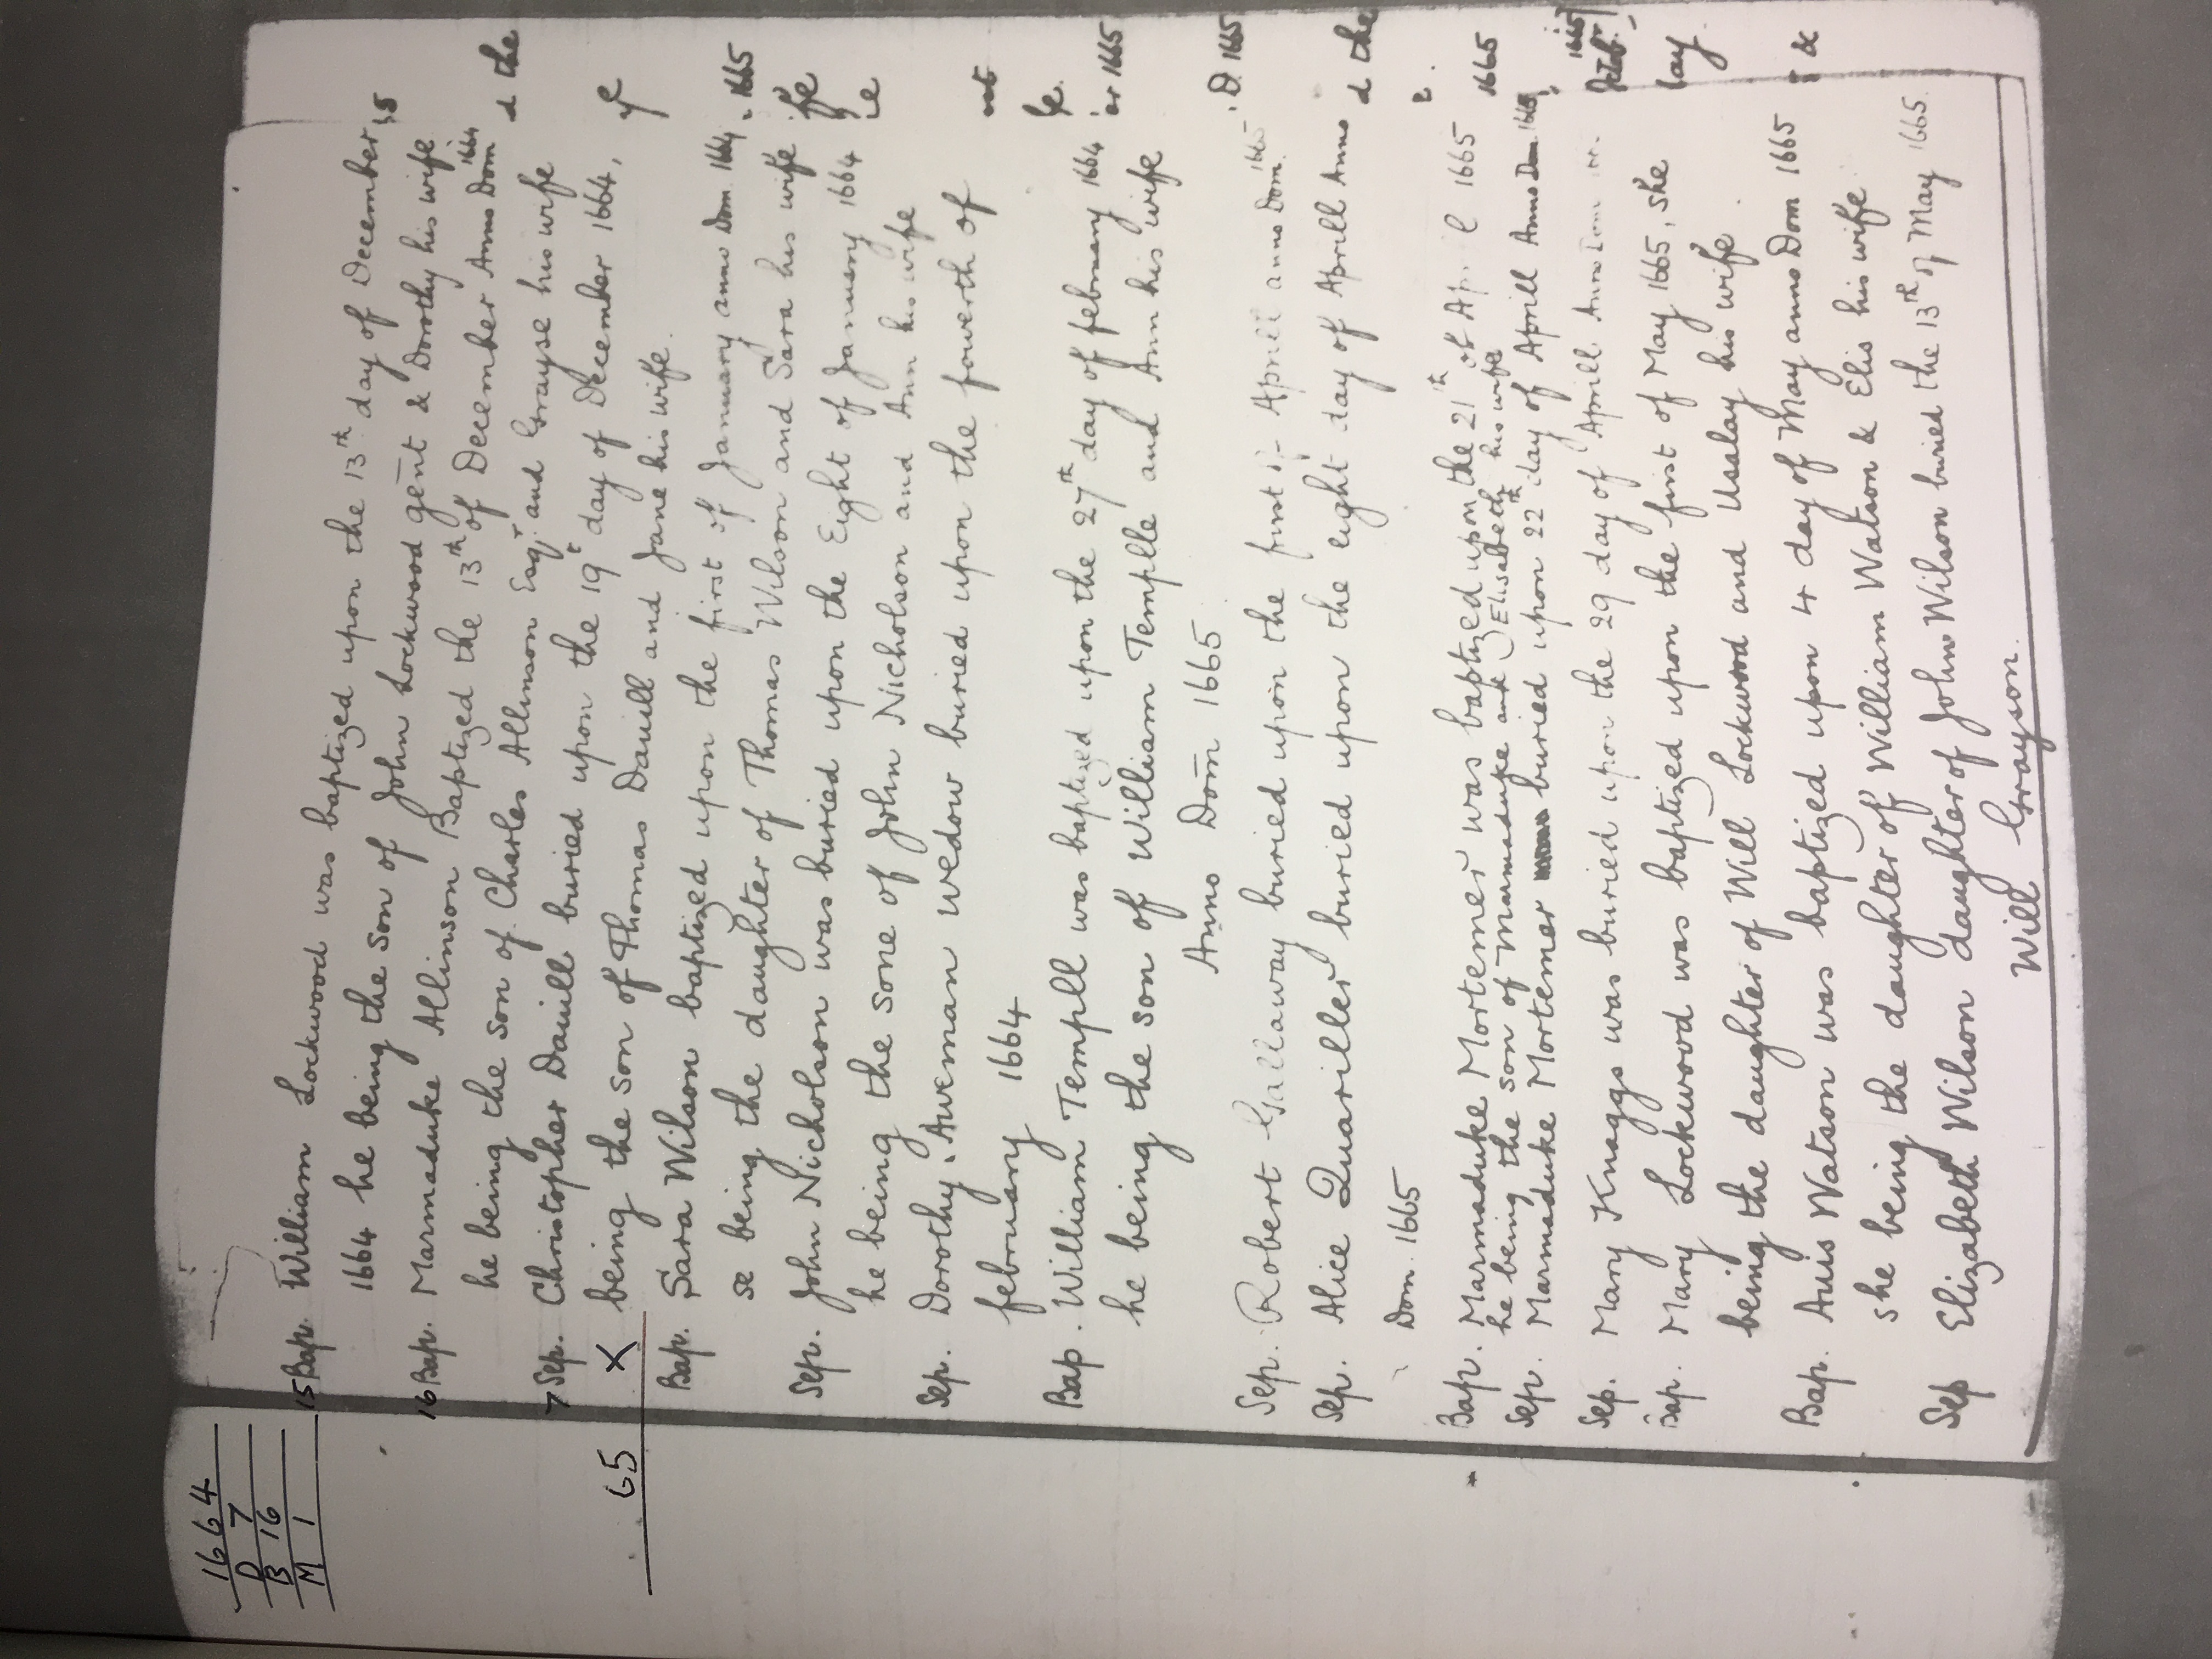 1664
D 7
B 16
M 1
15 Bap. William Lockwood was baptized upon the 13th day of December
1664 he being the son of John Lockwood gent & Dorothy his wife
16 Bap. Marmaduke Allinson Baptized the 13th of December Anno Dom 1664
he being the son of Charles Allinson Esqr and Grayse his wife
7 Sep. Christopher Dauill buried upon the 19t day of December 1664,
X being the son of Thomas Dauill and Jane his wife.
65
Bap. Sara Wilson baptized upon the first of January anno Dom 1664
se being the daughter of Thomas Wilson and Sara his wife
Sep. John Nicholson was buried upon the Eight of January 1664
he being the sone of John Nicholson and Ann his wife
Sep. Dorothy Aweman wedow buried upon the fowerth of
february 1664
Bap. William Templl was baptized upon the 27th day of february 1664
he being the son of William Templle and Ann his wife
Anno Dom 1665
Sep. Robert Gallaway buried upon the first of Aprill anno Dom. 1665
Sep. Alice Quariller buried upon the eight day of Aprill Anno
Dom. 1665
Bap. Marmaduke Mortemer was baptized upon the 21th of April 1665
he being the son of Marmaduke and Elisabeth his wife
Sep. Marmaduke Mortemer buried upon 22th day of Aprill Anno Dom 1665
Sep. Mary Knaggs was buried upon the 29 day of Aprill Anno Dom
Bap. Mary Lockwood was baptized upon the first of May 1665, she
being the daughter of Will Lockwood and Usalay his wife.
Bap. Anis Watson was baptized upon 4 day of May anno Dom 1665
she being the daughter of William Watson & Elis his wife
Sep Elizabeth Wilson daughter of John Wilson buried the 13th of May 1665.
Will Grayson.
d the
1665
er 1665
D. 1665
d the
1665
1665
lay
&